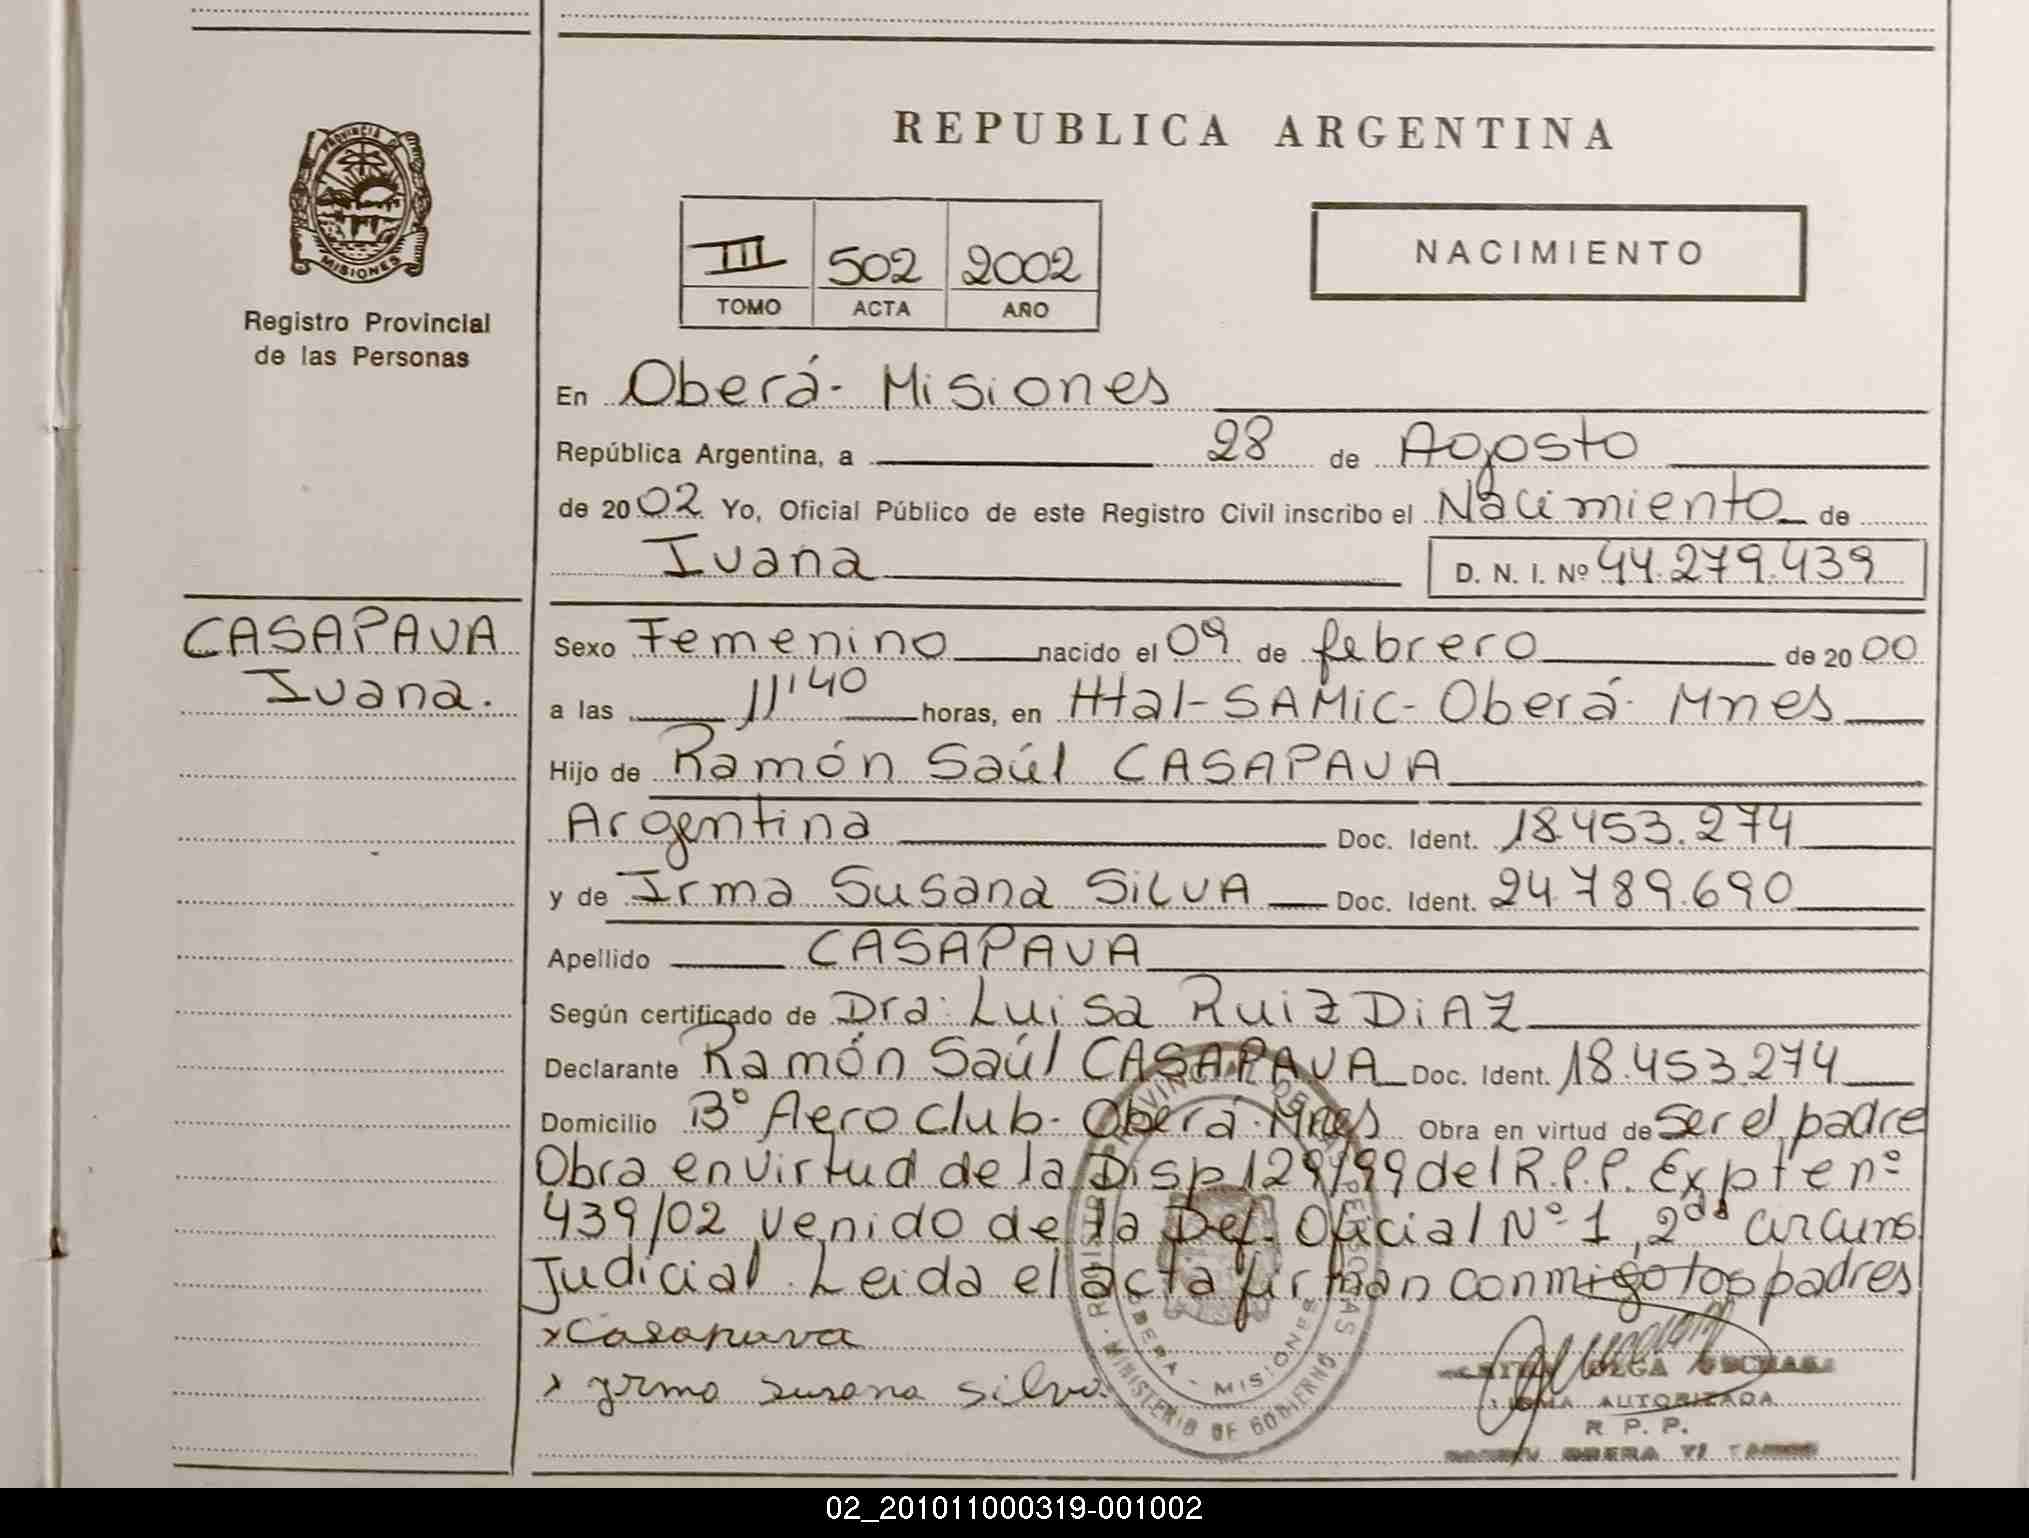 REPUBLICA ARGENTINA
PROVINCIA DE
MISIONES
Registro Provincial
de las Personas
III 502 2002
TOMO ACTA AÑO
NACIMIENTO
En Oberá- Misiones
República Argentina, a 28 de Agosto
de 2002 Yo, Oficial Público de este Registro Civil inscribo el Nacimiento de
Ivana D. N. I. Nº 44.279.439
CASAPAVA
Ivana.
Sexo Femenino nacido el 09 de febrero de 2000
a las 11'40 horas, en Htal-SAMiC-Oberá-Mnes
Hijo de Ramón Saúl CASAPAVA
Argentina Doc. Ident. 18.453.274
y de Irma Susana SiLVA Doc. Ident. 24.789.690
Apellido CASAPAVA
Según certificado de Dra: Luisa RuiZ DiAZ
Declarante Ramón Saúl CASAPAVA Doc. Ident. 18.453.274
Domicilio Bº Aero Club- Oberá-Mnes Obra en virtud de ser el padre
Obra en virtud de la Disp 129/99 del R.P.P. Expte nº
439/02 venido de la Def. Oficial Nº 1, 2da circuns
Judicial. Leida el acta firman conmigo los padres
x Casapava
x Irma Susana Silva
OLGA
FIRMA AUTORIZADA
R. P. P.
OBERA
OBERA - MISIONES
MINISTERIO DE GOBIERNO
02_201011000319-001002